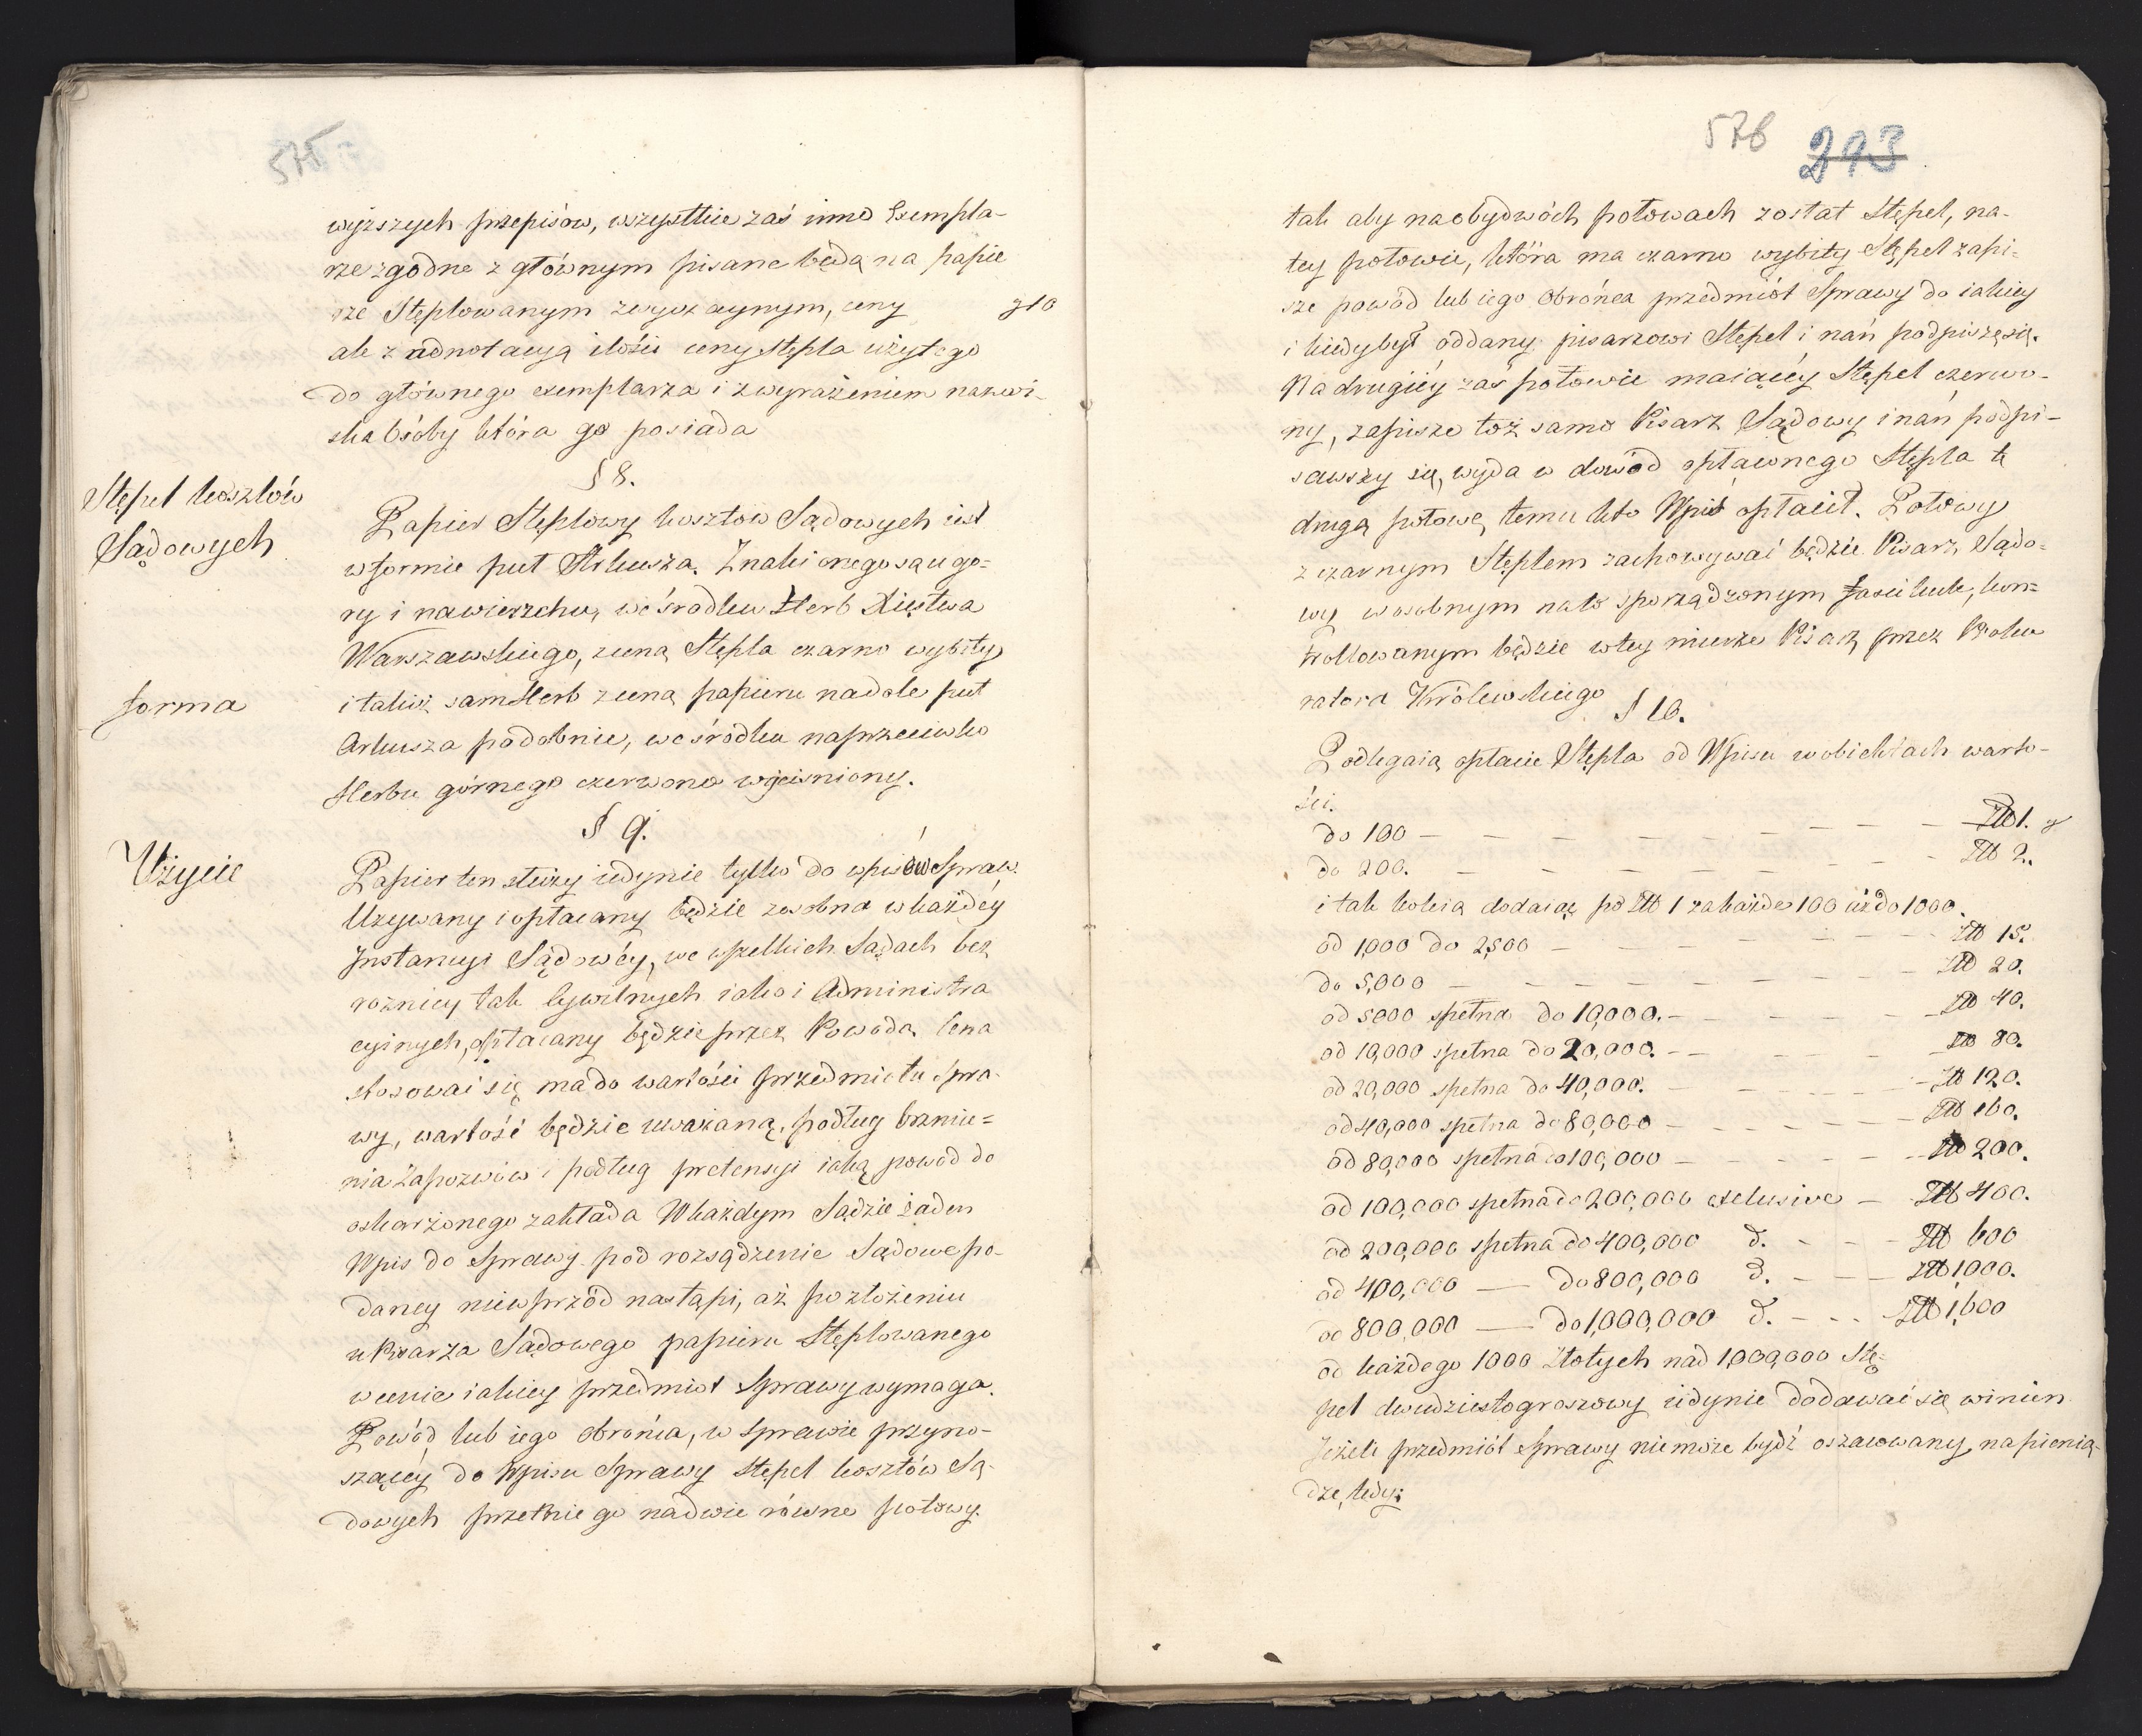 575
wyższych przepisów, wszystkie zaś inne Exempla-
rze zgodne z głównym pisane będą na papie
rze Stęplowanym zwyczaynym, ceny g 10
ale z adnotacyą ilości ceny stępla użytego
do głównego exemplarza i z wyrażeniem nazwi-
ska Osoby która go posiada
§ 8.
Stępel kosztów
Sądowych
Papier Stęplowy kosztów Sądowych iest
w formie puł Arkusza. Znaki onego są u gó-
ry i na wierzchu, we środku Herb Xięstwa
Warszawskiego, z ceną Stępla czarno wybity
forma
i takiż sam Herb z ceną papieru na dole puł
Arkusza podobnie, we środku naprzeciwko
Herbu górnego czerwono wyciśniony.
§ 9.
Użycie
Papier ten służy iedynie tylko do wpisów Spraw.
Używany i opłacany będzie z osobna w każdéy
Instancyi Sądowéy, we wszelkich Sądach bez
roznicy tak Cywilnych iako i Administra
cyinych, opłacany będzie przez Powoda. Cena
stosować się ma do wartości przedmiotu Spra-
wy, wartość będzie uważaną, podług brzmie=
nia Zapozwów i podług pretensyi iaką powod do
oskarżonego zakłada W każdym Sądzie żaden
Wpis do Sprawy pod rozsądzenie Sądowe po-
daney niewprzód nastąpi, aż po złożeniu
u Pisarza Sądowego papieru Stęplowanego
w cenie iakiey przedmiot Sprawy wymaga.
Powód lub iego Obrońca, w Sprawie przyno-
szącéy do Wpisu Sprawy Stępel kosztów Są-
dowych przetnie go na dwie równe połowy.
576 293
tak aby na obydwóch połowach został Stępel, na-
tey połowie, która ma czarno wybity Stępel zapi-
sze powód lub iego Obrońca przedmiot Sprawy do iakiey
i kiedy był oddany pisarzowi Stępel i nań podpisze się.
Na drugiéy zaś połowie maiącéy Stępel czerwo-
ny, zapisze toż samo Pisarz Sądowy i nań podpi-
sawszy się, wyda w dowód opłaconego Stępla tę
drugą połowę, temu kto Wpis opłacił. Połowy
z czarnym Stęplem zachowywać będzie Pisarz Sądo-
wy w osobnym na to sporządzonym fascikule, kon=
trollowanym będzie w tey mierze Pisarz przez Proku
ratora Królewskiego
§ 10.
Podlegaią opłacie Stępla od Wpisu w obiektach warto-
ści.
do 100 — — — — — — — — Złł 1. g
do 200. — — — — — — — — Złł 2.
i tak koleią dodaiąc po Złł 1 za każde 100 aż do 1000.
od 1,000 do 2,500 — — — — — — Złł 15.
do 5,000 — — — — — — — Złł 20.
od 5000 spełna do 10,000. — — — — — Złł 40.
od 10,000 spełna do 20,000. — — — — Złł 80.
od 20,000 spełna do 40,000. — — — — Złł 120.
od 40,000 spełna do 80,000 — — — — — Złł 160.
od 80,000 spełna do 100,000 — — — — — Złł 200.
od 100,000 spełna do 200,000 exclusive — Złł 400.
od 200,000 spełna do 400,000 d. - - - Złł 600
od 400,000 — do 800,000 d. - - - Złł 1,000.
od 800,000 — do 1,000,000 d. - - - Złł 1,600
od każdego 1000 złotych nad 1,000,000 Stę-
pel dwudziestogroszowy iedynie dodawać się winien
Jeżeli przedmiót Sprawy nie może bydź oszacowany na pienią-
dze, tedy: